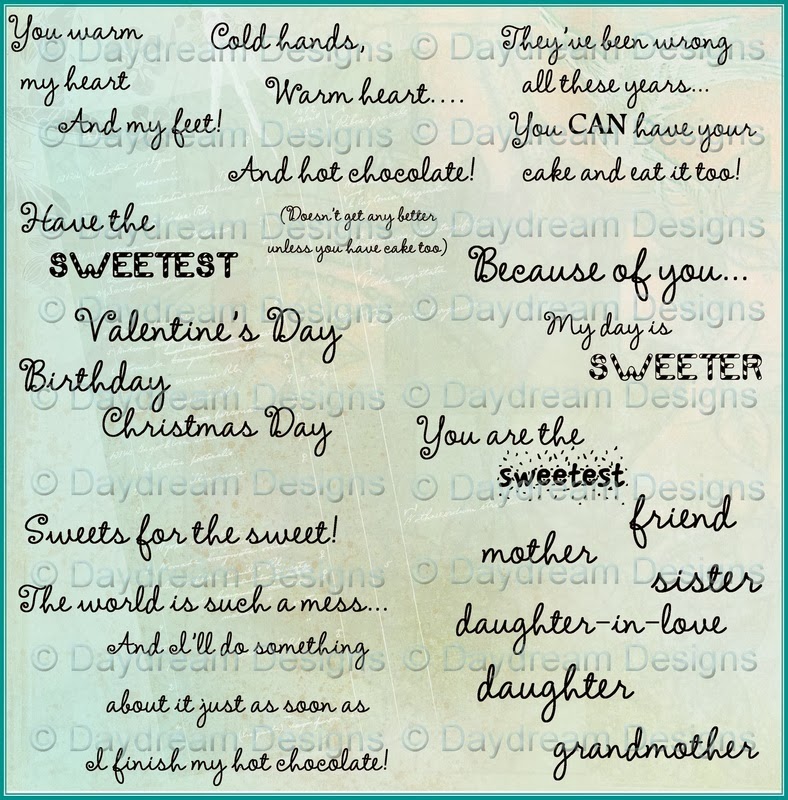 You warm
my heart
And my feet!
Cold hands,
Warm heart....
And hot chocolate!
(Doesn't get any better
unless you have cake too)
They've been wrong
all these years...
You CAN have your
cake and eat it too!
Have the
SWEETEST
Valentine's Day
Birthday
Christmas Day
Because of you...
My day is
SWEETER
You are the
sweetest
friend
mother
sister
daughter-in-love
daughter
grandmother
Sweets for the sweet!
The world is such a mess...
And I'll do something
about it just as soon as
I finish my hot chocolate!
© Daydream Designs © Daydream Designs
© Daydream Designs © Daydream Designs
© Daydream Designs © Daydream Designs
© Daydream Designs © Daydream Designs
© Daydream Designs © Daydream Designs
© Daydream Designs © Daydream Designs
© Daydream Designs © Daydream Designs
© Daydream Designs © Daydream Designs
© Daydream Designs © Daydream Designs